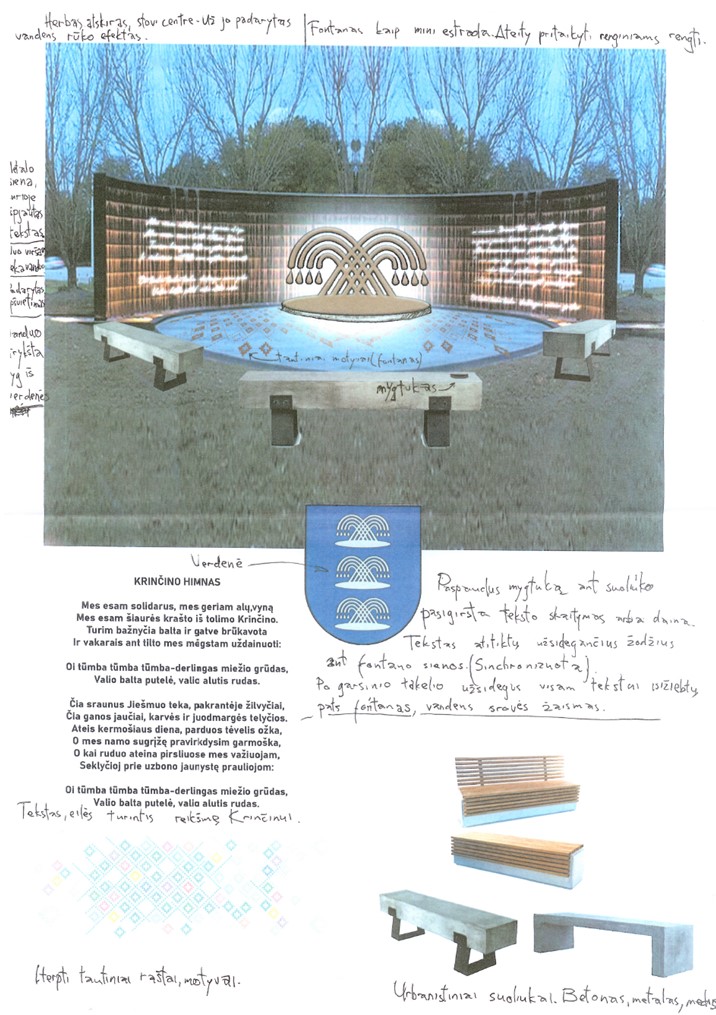 Herbas atskiras, stovi centre. Už jo padarytas
vandens rūko efektas.
Fontanas kaip mini estrada. Ateity pritaikyti renginiams rengti.
tekstas
tautiniai motyvai (fontanas)
mygtukas
Verdenė
KRINČINO HIMNAS
Mes esam solidarus, mes geriam alų,vyną
Mes esam šiaurės krašto iš tolimo Krinčino.
Turim bažnyčia balta ir gatve brūkavota
Ir vakarais ant tilto mes mėgstam uždainuoti:
Oi tūmba tūmba tūmba-derlingas miežio grūdas,
Valio balta putelė, valio alutis rudas.
Čia sraunus Jiešmuo teka, pakrantėje žilvyčiai,
Čia ganos jaučiai, karvės ir juodmargės telyčios.
Ateis kermošiaus diena, parduos tėvelis ožka,
O mes namo sugrįžę pravirkdysim garmoška,
O kai ruduo ateina pirsliuose mes važiuojam,
Seklyčioj prie uzbono jaunystę prauliojom:
Oi tūmba tūmba tūmba-derlingas miežio grūdas,
Valio balta putelė, valio alutis rudas.
Tekstas, eilės turintis reikšmę Krinčinui.
Paspaudus mygtuką ant suoliuko
pasigirsta teksto skaitymas arba daina.
Tekstas atitiktų užsidegančius žodžius
ant fontano sienos. (Sinchronizuota).
Po garsinio takelio užsidegus visam tekstui
pats fontanas, vandens srovės žaismas.
Įterpti tautiniai raštai, motyvai.
Urbanistiniai suoliukai. Betonas, metalas, medis